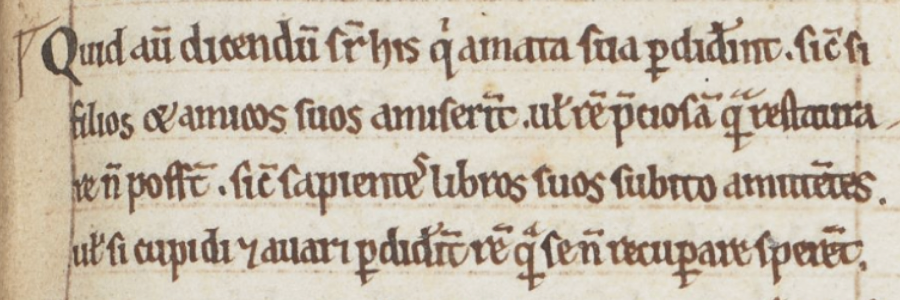 Quid aū dicendū sr̄ his qͥ amata sua ꝑdider̄int . sic̄ si
filios & amicos suos amiser̄t . ul̄ rē p̄ciosā qͣ̄ restaura-
re n̄ poss̄t . sic̄ sapientes libros suos subito amittētes .
ul̄ si cupidi ⁊ auari ꝑdider̄t rē qͣ̄ se n̄ recuꝑare sperēt .